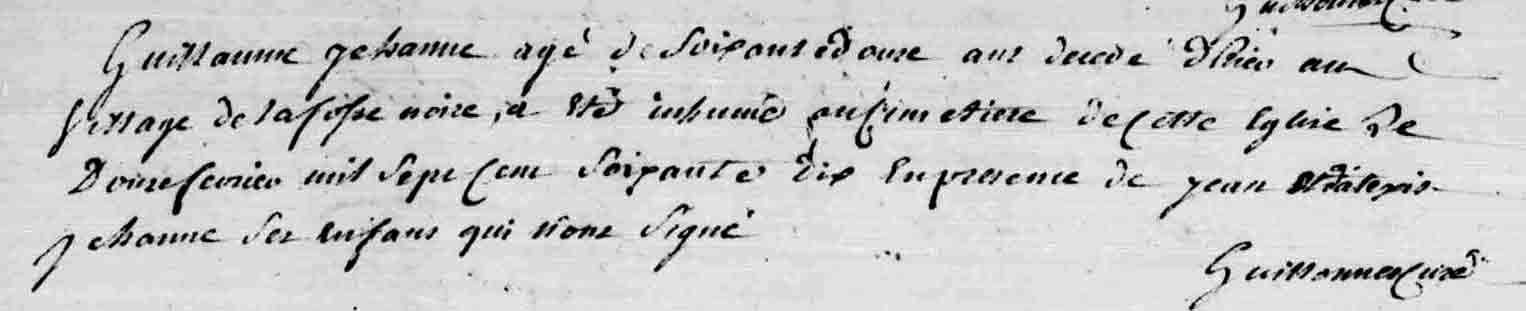 Guillaume jehanne agé de Soixante et douze ans decedé d'hier au
Village de la fosse noire, a eté inhumé au Cimetiere de cette Eglise Le
Douze fevrier mil Sept Cent Soixante dix En presence de jean et d'alexis
jehanne Ses Enfans qui n'ont Signé
Guillonner curé